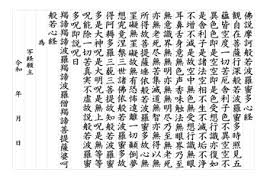 佛説摩訶般若波羅蜜多心経
観自在菩薩行深般若波羅蜜多時照見五
蘊皆空度一切苦厄舎利子色不異空空不
異色色即是空空即是色受想行識亦復如
是舎利子是諸法空相不生不滅不垢不浄
不増不減是故空中無色無受想行識無眼
耳鼻舌身意無色声香味触法無眼界乃至
無意識界無無明亦無無明尽乃至無老死
亦無老死尽無苦集滅道無智亦無得以無
所得故菩提薩埵依般若波羅蜜多故心無
罣礙無罣礙故無有恐怖遠離一切顛倒夢
想究竟涅槃三世諸佛依般若波羅蜜多故
得阿耨多羅三藐三菩提故知般若波羅蜜
多是大神呪是大明呪是無上呪是無等等
呪能除一切苦真実不虚故説般若波羅蜜
多呪即説呪曰
羯諦羯諦波羅羯諦波羅僧羯諦菩提薩婆訶
般若心経
為
写経願主
令和 年 月 日